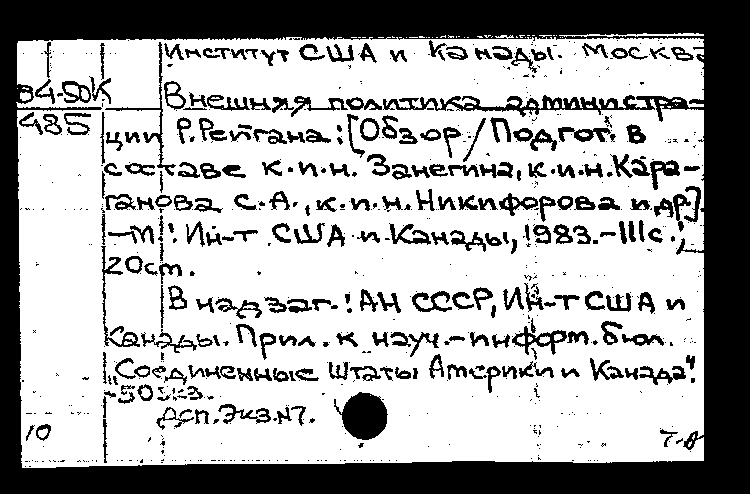 Институт США и Канады. Москва
84-50К
Внешняя политика администра-
485
ции Р.Рейгана: [Обзор / Подгот. в
составе к.и.н. Занегина, к.и.н. Кара-
ганова С.А., к.и.н. Никифорова и др].
-М.: Ин-т США и Канады, 1983.-111с.;
20см.
В надзаг.: АН СССР, Ин-т США и
Канады. Прил. к науч.-информ. бюл.
"Соединенные Штаты Америки и Канада".
-50экз.
ДСП. Экз.N7.
10